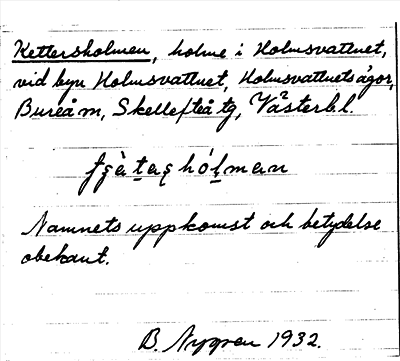 Kettersholmen, holme i Holmsvattnet,
vid byn Holmsvattnet, Holmsvattnets ägor,
Bureå m, Skellefteå tg, Västerb. l.
hólman
Namnets uppkomst och betydelse
obekant.
B. Nygren 1932.